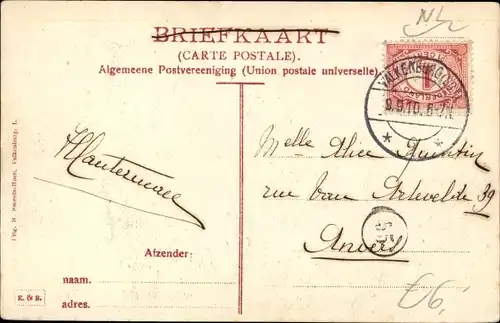 BRIEFKAART
(CARTE POSTALE).
Algemeene Postvereeniging (Union postale universelle)
NL
VALKENBURG
9.9.10. 6-7N
* 2 *
1
Melle Alice Quentin
rue van Artevelde 39
Anvers
Afzender:
naam.
adres.
K. & B.
€6,